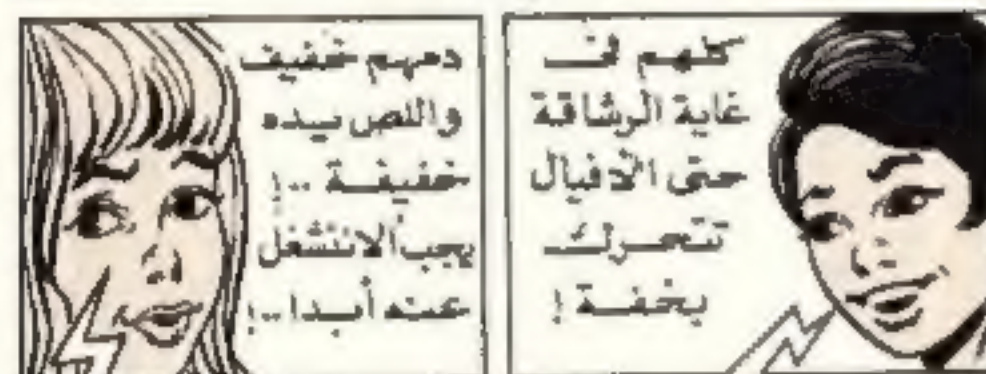 كلهم فى
غاية الرشاقة
حتى الأفيال
تتحرك
بخفة !
دمهم خفيف
واللص بيده
خفيفة ..!
يجب ألا ننشغل
عنه أبدا ..!